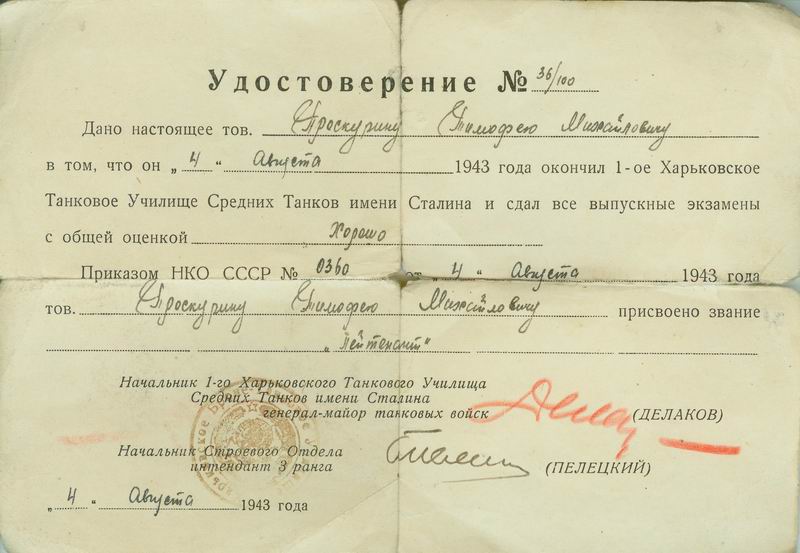 Удостоверение № 36/100
Дано настоящее тов. Проскурину Тимофею Михайловичу
в том, что он „4“ Августа 1943 года окончил 1-ое Харьковское
Танковое Училище Средних Танков имени Сталина и сдал все выпускные экзамены
с общей оценкой Хорошо
Приказом НКО СССР № 0360 от „4“ Августа 1943 года
тов. Проскурину Тимофею Михайловичу присвоено звание
„Лейтенант“
Начальник 1-го Харьковского Танкового Училища
Средних Танков имени Сталина
генерал-майор танковых войск (ДЕЛАКОВ)
Начальник Строевого Отдела
интендант 3 ранга (ПЕЛЕЦКИЙ)
„4“ Августа 1943 года